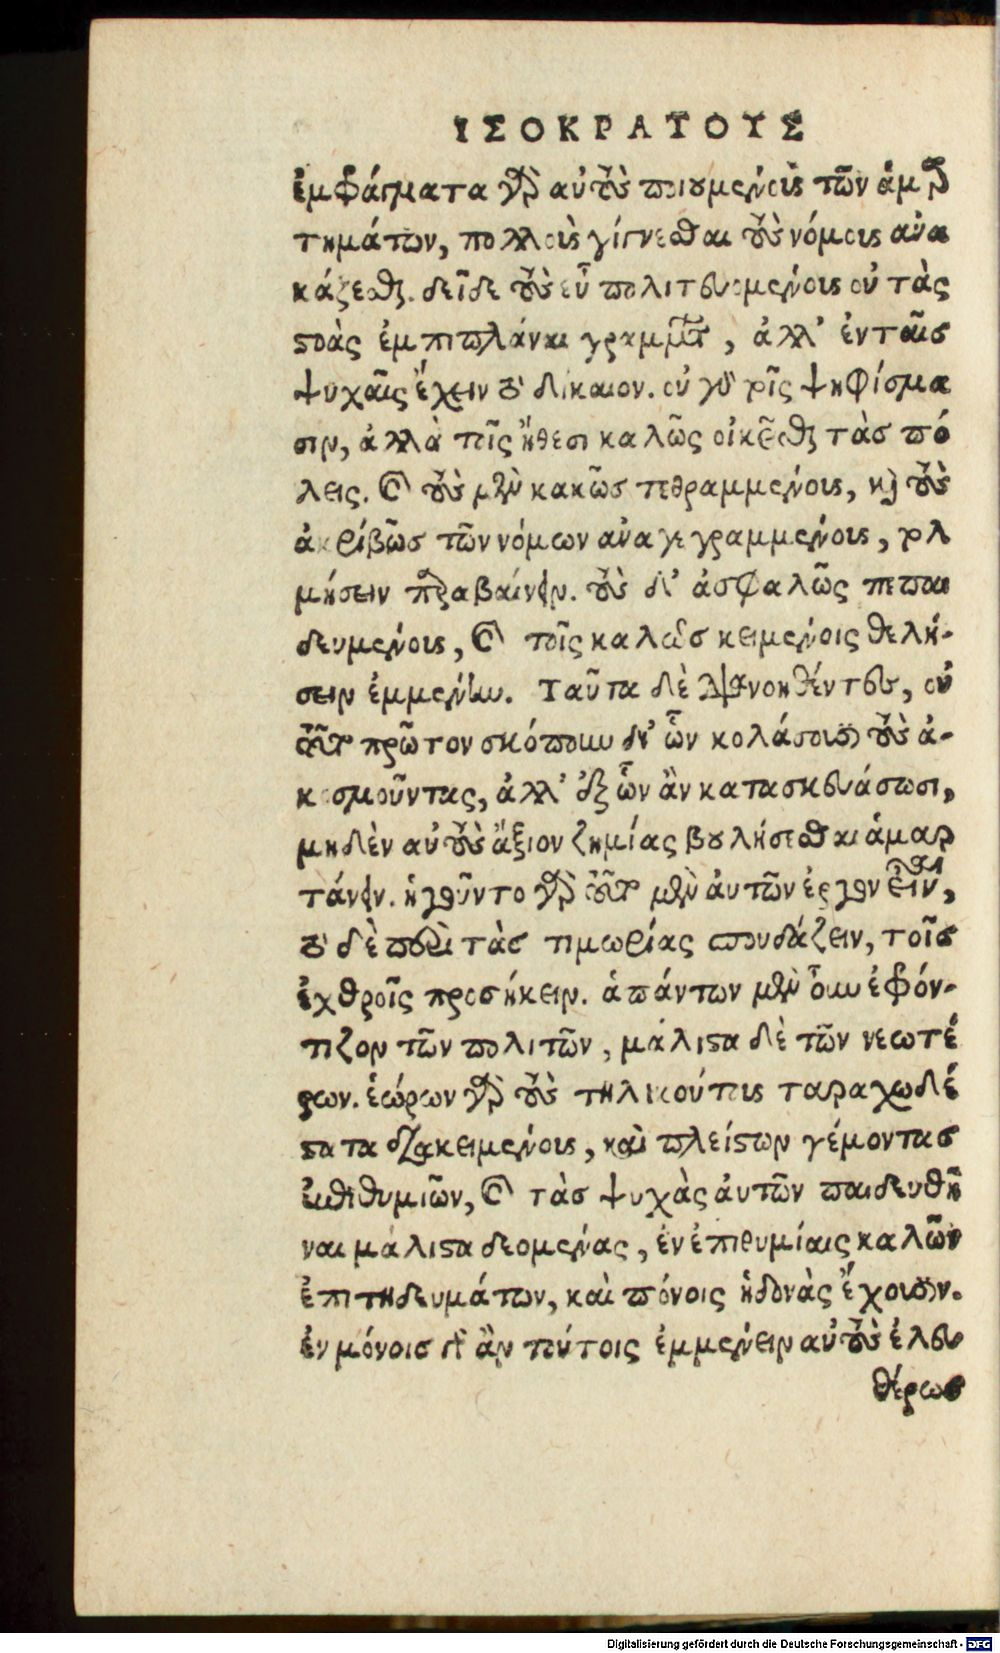 ΙΣΟΚΡΑΤΟΥΣ
ἐμφράγματα γὰρ αὐτοὺς ποιουμένους τῶν ἁμαρ
τημάτων, πολλοὺς γίγνεσθαι τοὺς νόμους ἀνα
κάζεσθαι. δεῖ δὲ τοὺς εὖ πολιτευομένους οὐ τὰς
στοὰς ἐμπιπλάναι γραμμάτων, ἀλλ' ἐν ταῖς
ψυχαῖς ἔχειν τὸ δίκαιον. οὐ γὰρ τοῖς ψηφίσμα
σιν, ἀλλὰ τοῖς ἤθεσι καλῶς οἰκεῖσθαι τὰς πό
λεις. καὶ τοὺς μὲν κακῶς τεθραμμένους, καὶ τοὺς
ἀκριβῶς τῶν νόμων ἀναγεγραμμένους, τολ
μήσειν παραβαίνειν. τοὺς δ' ἀσφαλῶς πεπαι
δευμένους, καὶ τοῖς καλῶς κειμένοις θελή-
σειν ἐμμένειν. Ταῦτα δὲ διανοηθέντες, οὐ
τοῦτο πρῶτον σκόπουν δι' ὧν κολάσουσι τοὺς ἀ-
κοσμοῦντας, ἀλλ' ἐξ ὧν ἂν κατασκευάσωσι,
μηδὲν αὐτοὺς ἄξιον ζημίας βουλήσεσθαι ἁμαρ
τάνειν. ἡγοῦντο γὰρ τοῦτο μὲν αὑτῶν ἔργον εἶναι,
τὸ δὲ περὶ τὰς τιμωρίας σπουδάζειν, τοῖς
ἐχθροῖς προσήκειν. ἁπάντων μὲν οὖν ἐφρόν-
τιζον τῶν πολιτῶν, μάλιστα δὲ τῶν νεωτέ
ρων. ἑώρων γὰρ τοὺς τηλικούτους ταραχωδέ
στατα διακειμένους, καὶ πλείστων γέμοντας
ἐπιθυμιῶν, καὶ τὰς ψυχὰς αὐτῶν παιδευθῆ
ναι μάλιστα δεομένας, ἐν ἐπιθυμίαις καλῶν
ἐπιτηδευμάτων, καὶ πόνοις ἡδονὰς ἔχουσιν.
ἐν μόνοις γὰρ ἂν τούτοις ἐμμένειν αὐτοὺς ἐλευ
θέρως
Digitalisierung gefördert durch die Deutsche Forschungsgemeinschaft - DFG